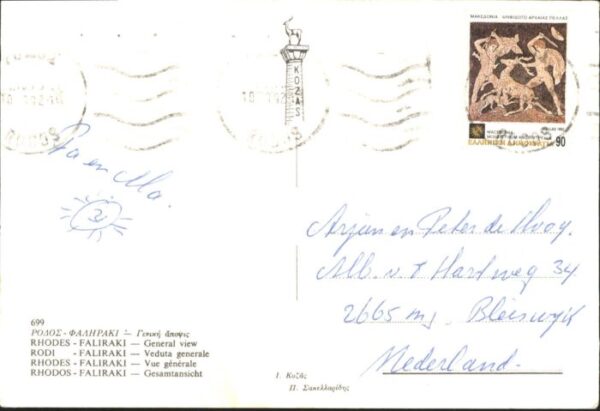 ΜΑΚΕΔΟΝΙΑ - ΨΗΦΙΔΩΤΟ ΑΡΧΑΙΑΣ ΠΕΛΛΑΣ
ΚΟΖΑΣ
ΕΛΛΗΝΙΚΗ ΔΗΜΟΚΡΑΤΙΑ 90
Pa en Ma.
Arjan en Peter de Rooy.
Alb. v. t Hartweg 34
2665 mg, Bleiswyk
Nederland.
699
ΡΟΔΟΣ - ΦΑΛΗΡΑΚΙ — Γενική άποψις
RHODES - FALIRAKI — General view
RODI - FALIRAKI — Veduta generale
RHODES - FALIRAKI — Vue générale
RHODOS - FALIRAKI — Gesamtansicht
Ι. Κοζάς
Π. Σακελλαρίδης